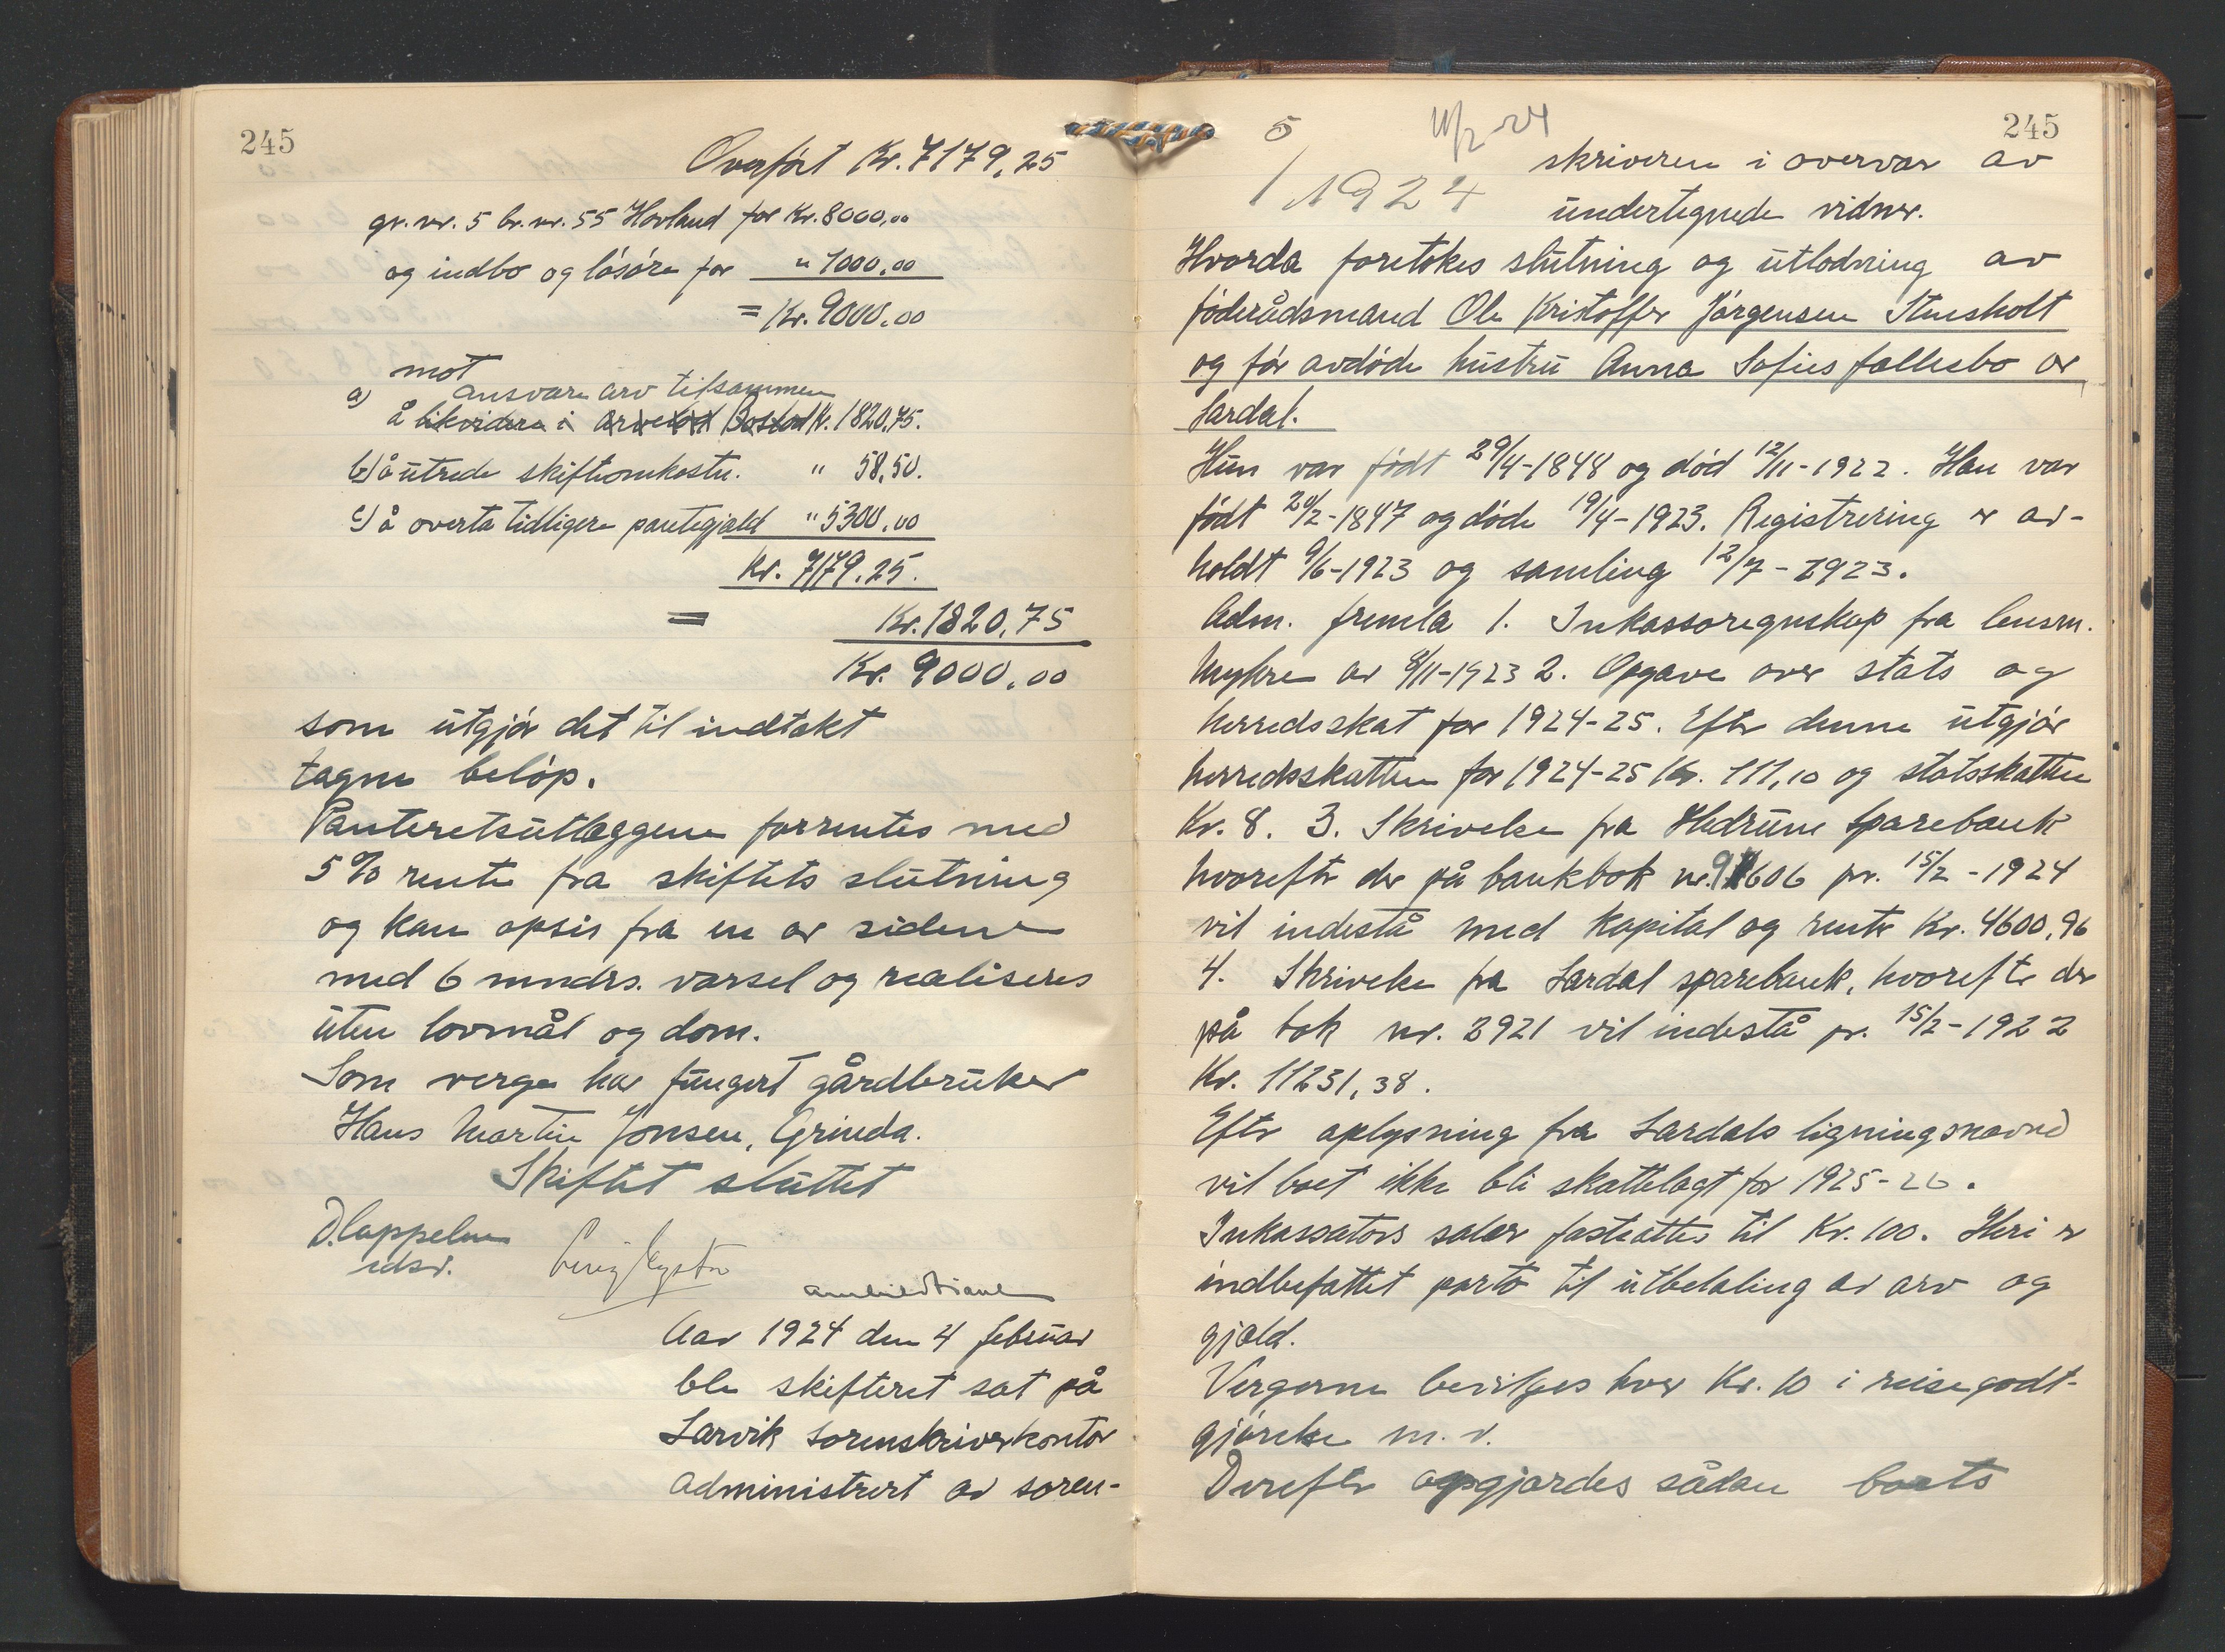 245
Overført Kr. 7179,25
gr. nr. 5 br. nr. 55 Hovland for Kr. 8000,00
og indbo og løsøre for " 1000,00
= Kr. 9000,00
mot
a) ansvare arv tilsammen
å likvidere i Kr. 1820,75.
b) å utrede skifteomkostn. " 58,50.
c) å overta tidligere pantegjæld " 5300,00
Kr. 7179,25.
= Kr. 1820,75
Kr. 9000,00
som utgjør det til indtækt
tagne beløp.
Panteretsutlæggene forrentes med
5 % rente fra skiftets slutning
og kan opsies fra en av sidene
med 6 mndrs. varsel og realiseres
uten lovmål og dom.
Som verge har fungert gårdbruker
Hans Martin Jonsen, Grinda.
Skiftet sluttet
D. Cappelen
edsv.
Aar 1924 den 4 februar
ble skifteret sat på
Larvik sorenskriverkontor
administrert av soren-
245
5 11/2-24
1 1924
skriveren i overvær av
undertegnede vidner.
Hvorda foretokes slutning og utlodning av
føderådsmand Ole Kristoffer Jörgensen Stensholt
og før avdöde hustru Anna Sofies fællesbo av
Lardal.
Hun var født 29/4-1848 og død 12/11-1922. Han var
født 20/2-1847 og døde 19/4-1923. Registrering er av-
holdt 9/6-1923 og samling 12/7-1923.
Adm. fremla 1. Inkassoregnskap fra lensm.
Myhre av 8/11-1923 2. Opgave over stats og
herredsskat for 1924-25. Efter denne utgjør
herredsskatten for 1924-25 Kr. 111,10 og statsskatten
Kr. 8. 3. Skrivelse fra Hedrum Sparebank
hvorefter der på bankbok nr. 606 pr. 15/2-1924
vil indestå med kapital og rente Kr. 4600,96
4. Skrivelse fra Lardal sparebank, hvorefter der
på bok nr. 2921 vil indestå pr. 15/2-1922
Kr. 11231,38.
Efter oplysning fra Lardals ligningsnævnd
vil boet ikke bli skattelagt for 1925-26.
Inkassators salær fastsattes til Kr. 100. Heri er
indbefattet porto til utbetaling av arv og
gjæld.
Vergerne bevilges hver Kr. 10 i reisegodt-
gjørelse m. v.
Derefter opgjordes sådan boets